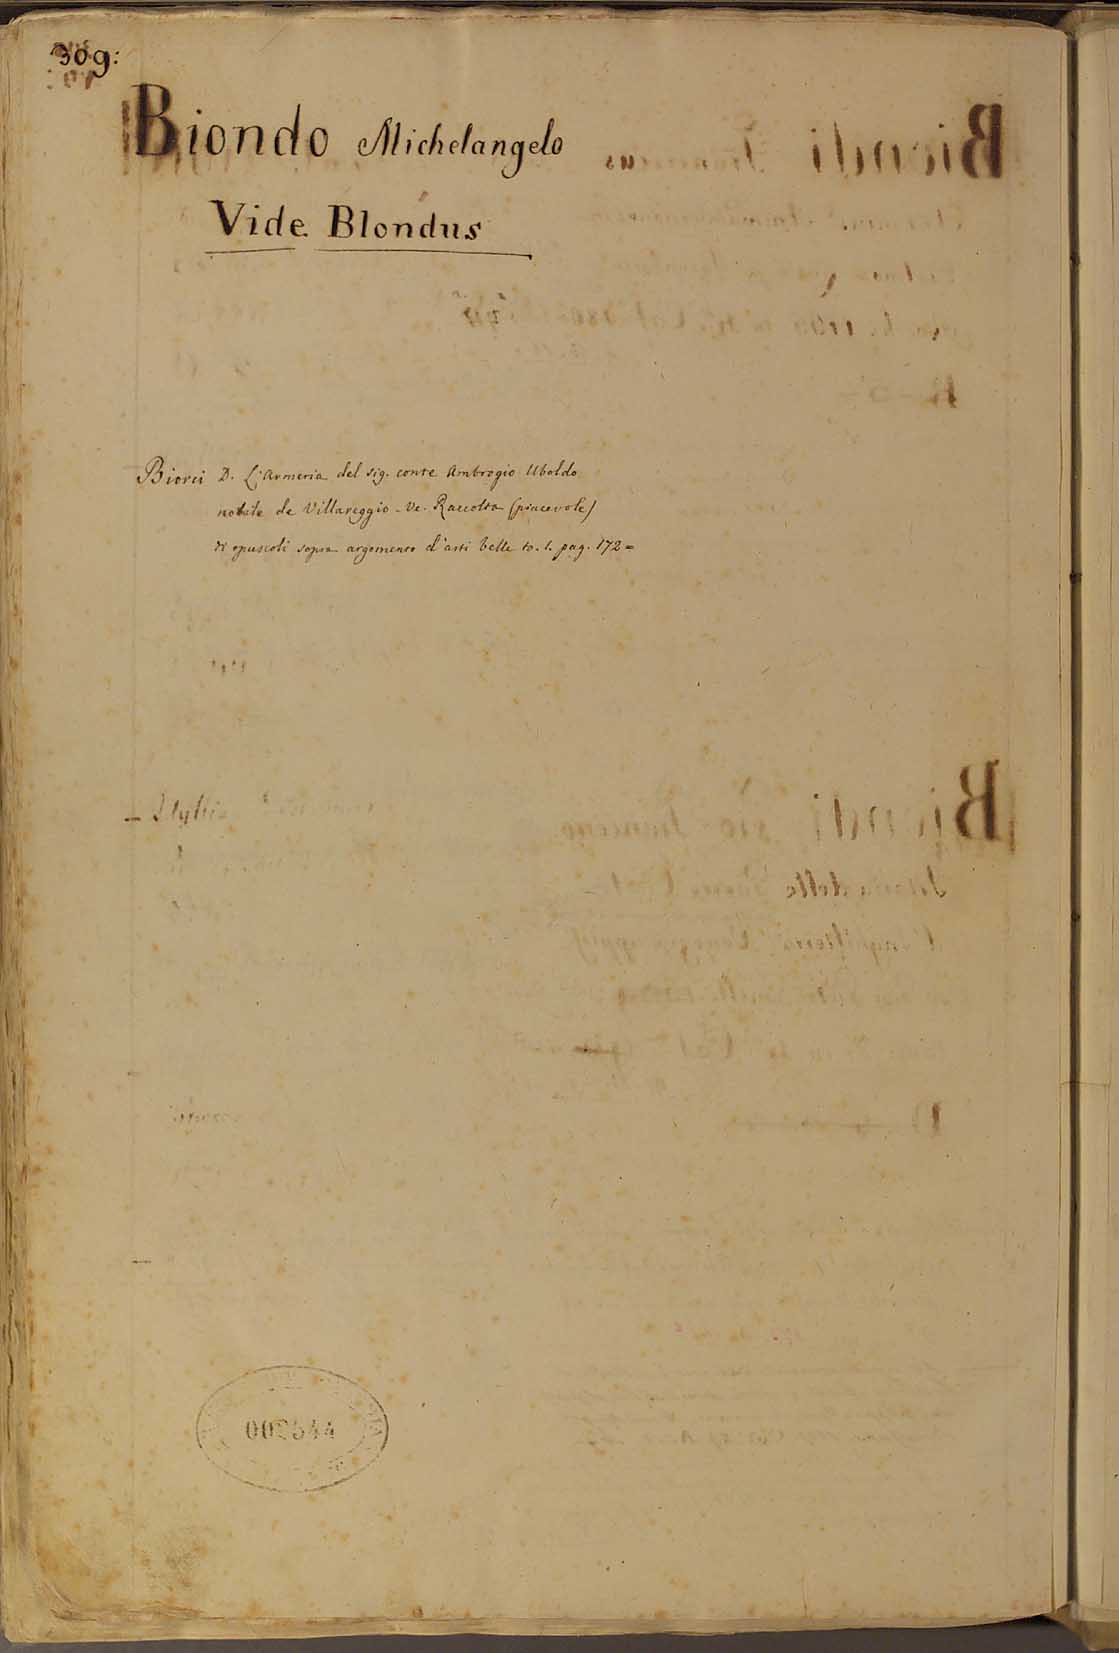 309:
Biondo Michelangelo
Vide Blondus
Biorci D. L'Armeria del sig. conte Ambrogio Uboldo
nobile de Villareggio - Ve. Raccolta (piacevole)
di opuscoli sopra argomento d'arti belle to. 1. pag. 172=
002544